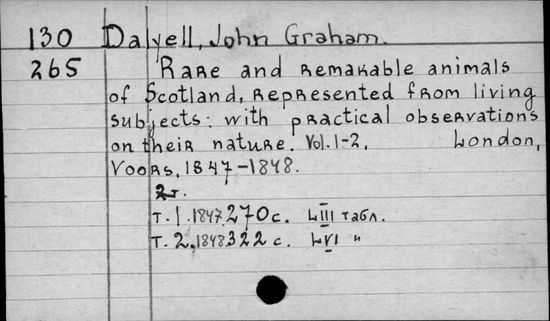 130 Dalyell, John Graham.
265 Rare and remakable animals
of Scotland, represented from living
subjects: with practical observations
on their nature. Vol. 1-2. London,
Voors, 1847-1848.
2т.
т. 1. 1847. 270 с. LIII табл.
т. 2. 1848. 322 с. LVI "